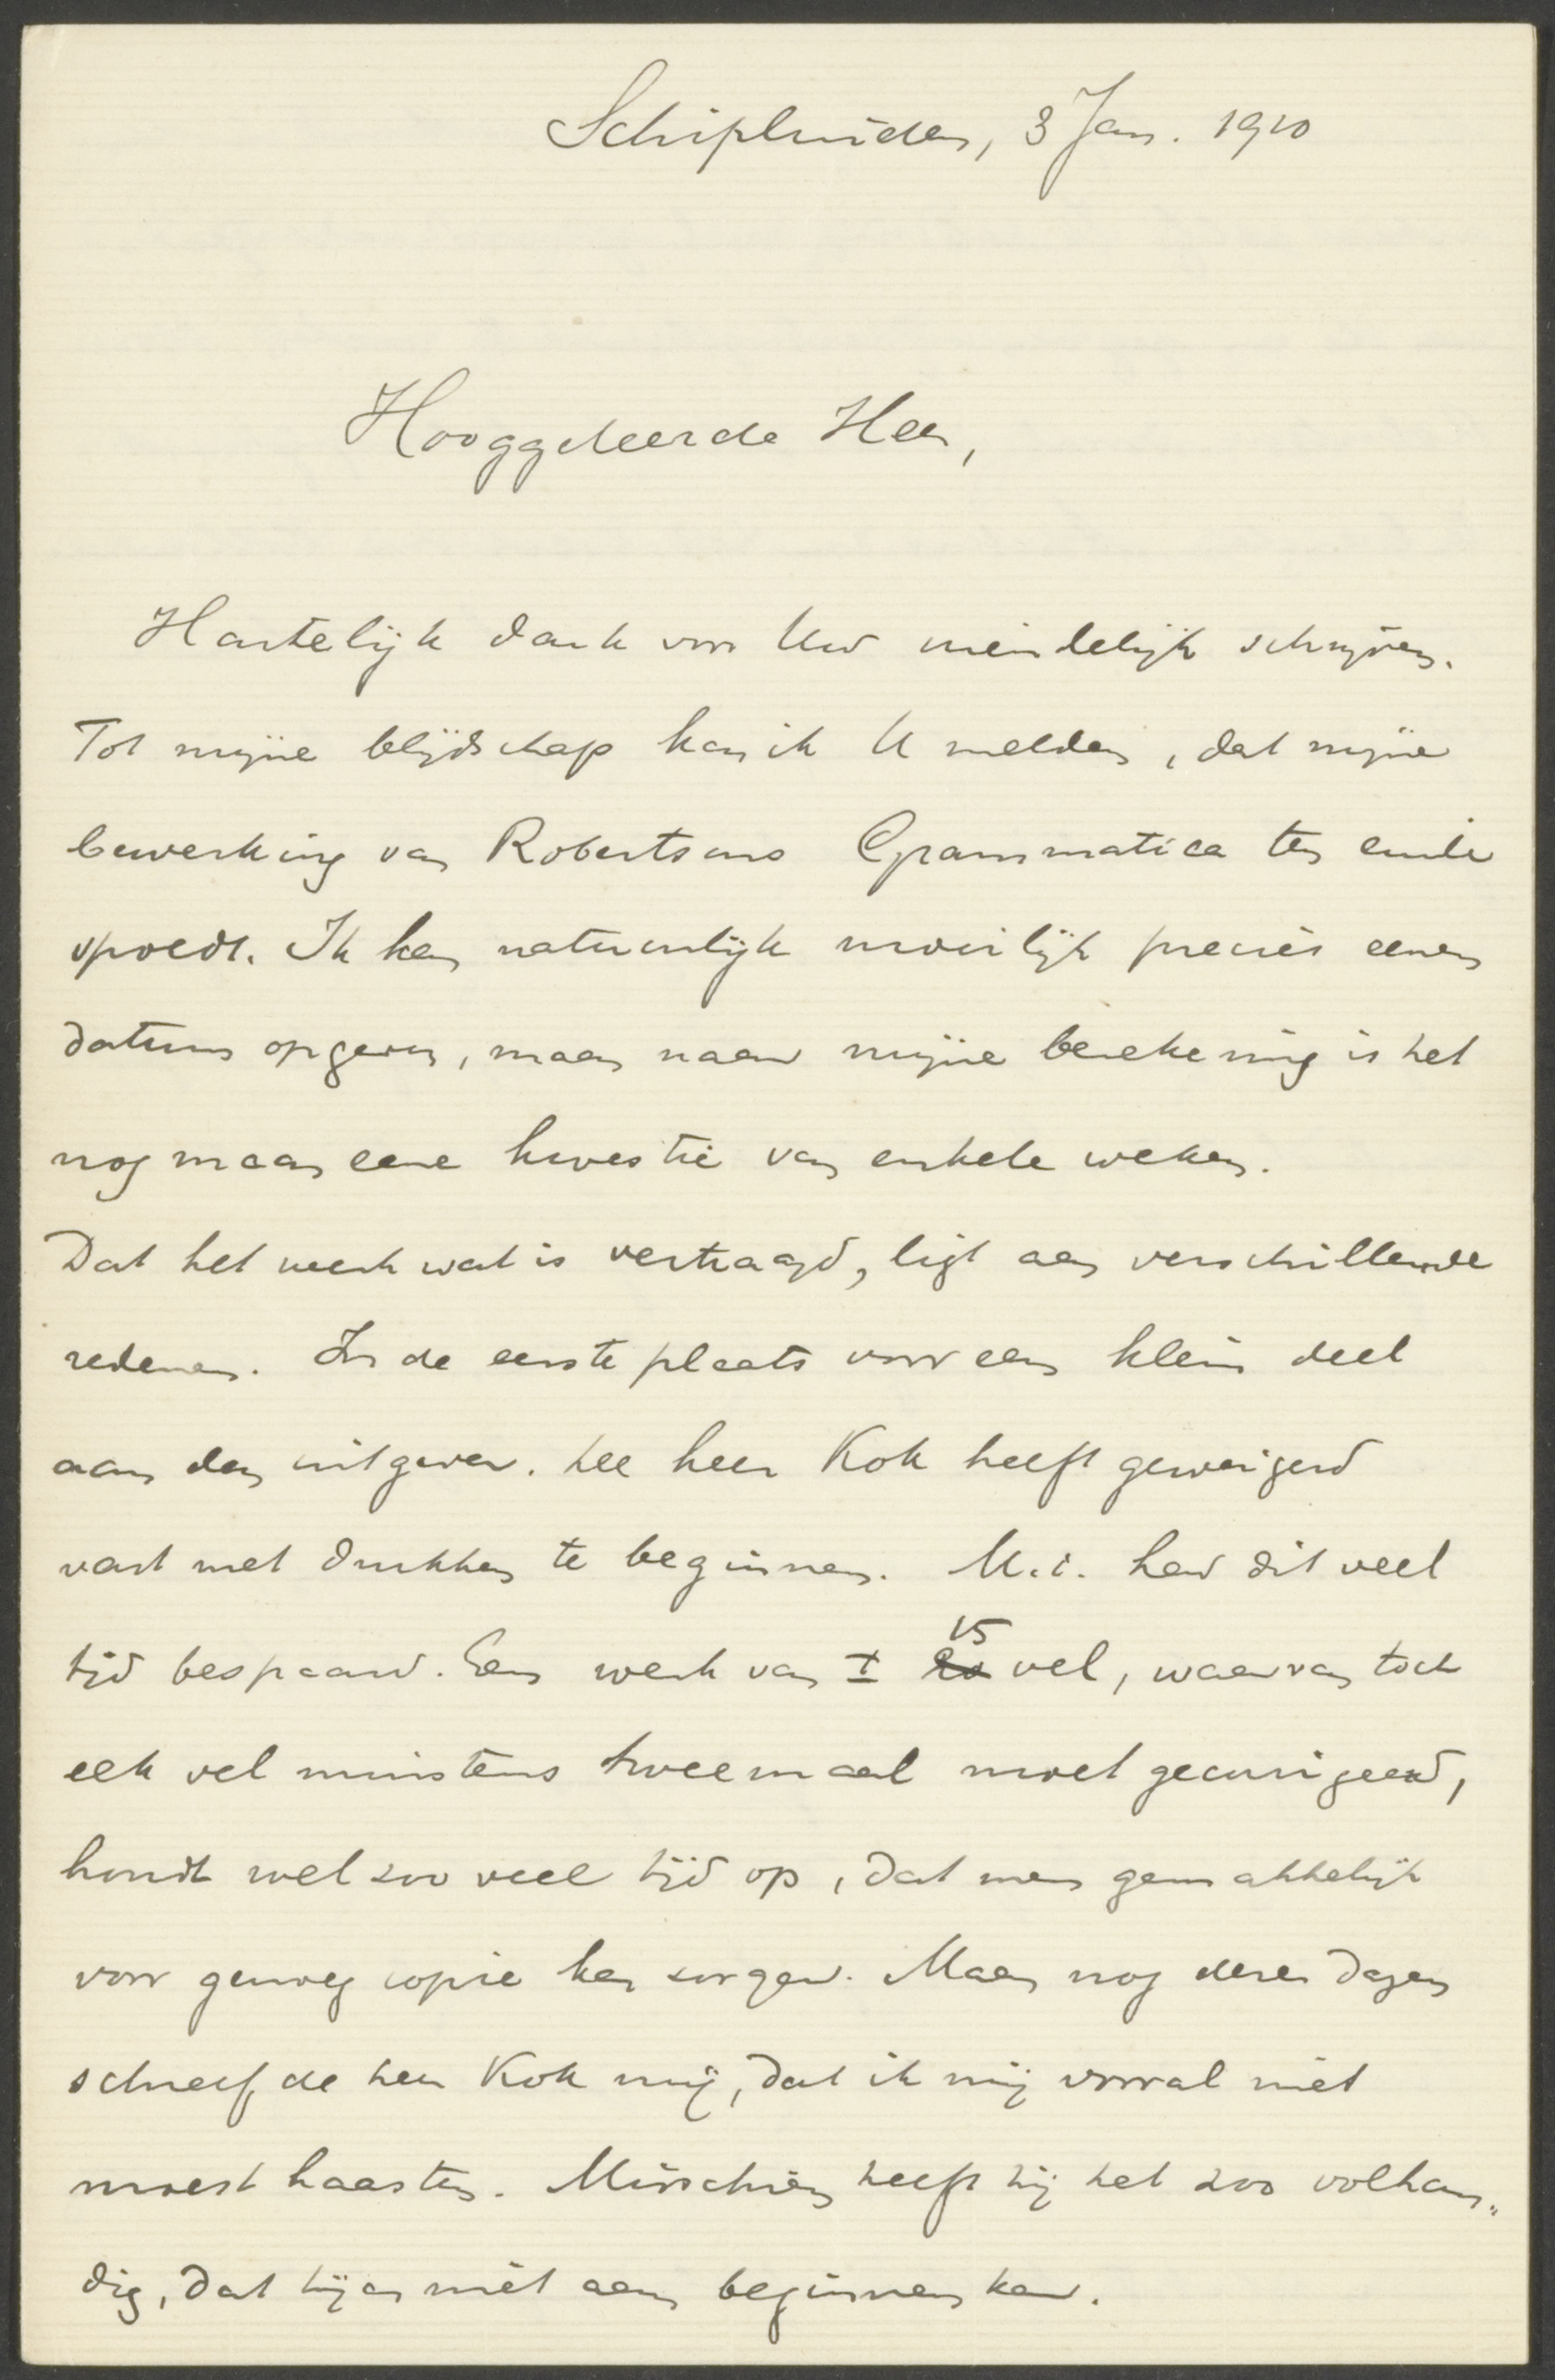 Schipluiden, 3 Jan. 1910
Hooggeleerde Heer,
Hartelijk dank voor Uw vriendelijk schrijven.
Tot mijne blijdschap kan ik U melden, dat mijne
bewerking van Robertsons Grammatica ten einde
spoedt. Ik kan natuurlijk moeilijk precies eenen
datum opgeven, maar naar mijne berekening is het
nog maar eene kwestie van enkele weken.
Dat het werk wat is vertraagd, ligt aan verschillende
redenen. In de eerste plaats voor een klein deel
aan den uitgever. De heer Kok heeft geweigerd
vast met drukken te beginnen. M.i. had dit veel
tijd bespaard. Een werk van ± 15 vel, waarvan toch
elk vel minstens tweemaal moet gecorrigeerd,
houdt wel zoo veel tijd op, dat men gemakkelijk
voor genoeg copie kan zorgen. Maar nog dezer dagen
schreef de heer Kok mij, dat ik mij vooral niet
moest haasten. Misschien heeft hij het zoo volhan„
dig, dat hij er niet aan beginnen kan.